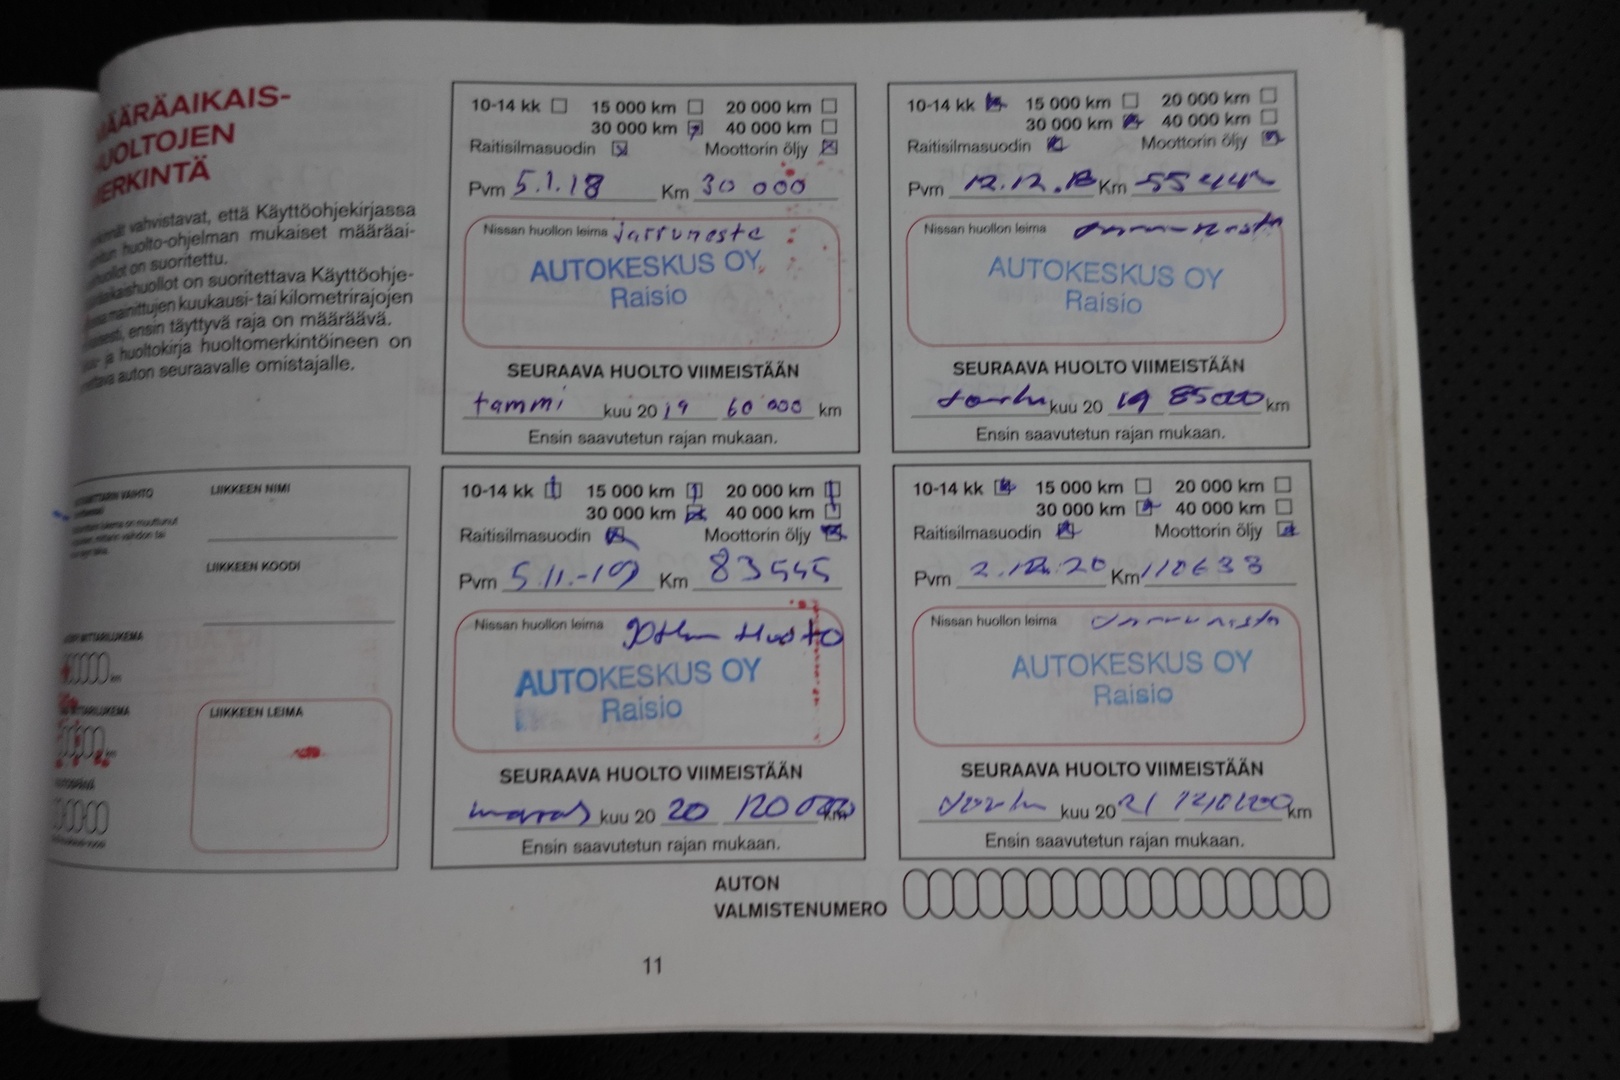 MÄÄRÄAIKAIS-
HUOLTOJEN
MERKINTÄ
vahvistavat, että Käyttöohjekirjassa
huolto-ohjelman mukaiset määräai-
huollot on suoritettu.
on suoritettava Käyttöohje-
mainittujen kuukausi- tai kilometrirajojen
ensin täyttyvä raja on määräävä.
ja huoltokirja huoltomerkintöineen on
auton seuraavalle omistajalle.
10-14 kk 15 000 km 20 000 km
30 000 km 40 000 km
Raitisilmasuodin Moottorin öljy
Pvm 5.1.18 Km 30 000
Nissan huollon leima jarruneste
AUTOKESKUS OY
Raisio
SEURAAVA HUOLTO VIIMEISTÄÄN
tammi kuu 20 19 60 000 km
Ensin saavutetun rajan mukaan.
10-14 kk 15 000 km 20 000 km
30 000 km 40 000 km
Raitisilmasuodin Moottorin öljy
Pvm 12.12.18 Km
Nissan huollon leima
AUTOKESKUS OY
Raisio
SEURAAVA HUOLTO VIIMEISTÄÄN
kuu 20 19 85000 km
Ensin saavutetun rajan mukaan.
VAIHTO LIIKKEEN NIMI
LIIKKEEN KOODI
MITTARILUKEMA
km
LIIKKEEN LEIMA
10-14 kk 15 000 km 20 000 km
30 000 km 40 000 km
Raitisilmasuodin Moottorin öljy
Pvm 5.11.-19 Km 83545
Nissan huollon leima
AUTOKESKUS OY
Raisio
SEURAAVA HUOLTO VIIMEISTÄÄN
marras kuu 20 20 120 000 km
Ensin saavutetun rajan mukaan.
10-14 kk 15 000 km 20 000 km
30 000 km 40 000 km
Raitisilmasuodin Moottorin öljy
Pvm 2.12.20 Km 110633
Nissan huollon leima
AUTOKESKUS OY
Raisio
SEURAAVA HUOLTO VIIMEISTÄÄN
kuu 20 21 km
Ensin saavutetun rajan mukaan.
AUTON
VALMISTENUMERO
11